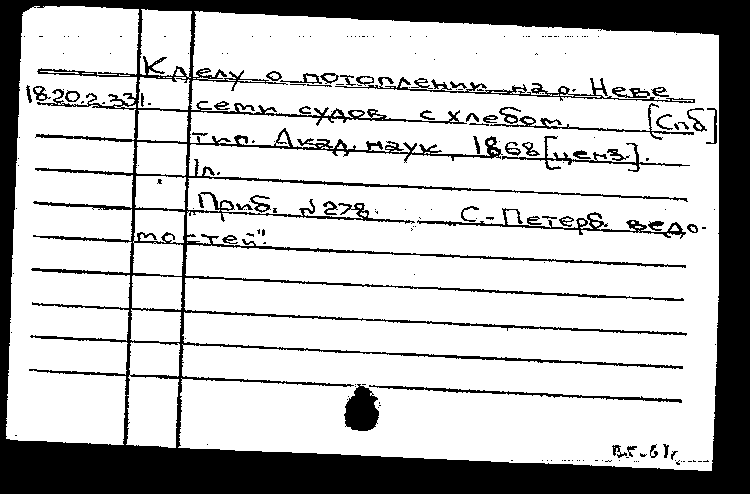 К делу о потоплении на р. Неве
18.20.2.331. сети судов с хлебом. [Спб]
тип. Акад. наук, 1868 [ценз.].
1л.
Приб. №278. С.-Петерб. ведо-
мостей".